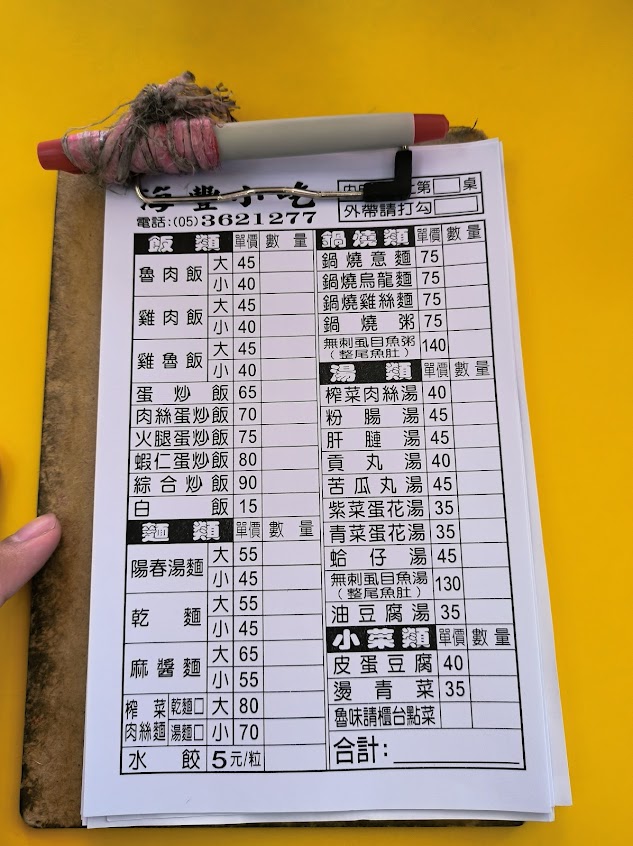 海豐小吃
電話:(05)3621277
第 桌
外帶請打勾
飯類 單價 數量
魯肉飯 大 45
小 40
雞肉飯 大 45
小 40
雞魯飯 大 45
小 40
蛋炒飯 65
肉絲蛋炒飯 70
火腿蛋炒飯 75
蝦仁蛋炒飯 80
綜合炒飯 90
白飯 15
麵類 單價 數量
陽春湯麵 大 55
小 45
乾麵 大 55
小 45
麻醬麵 大 65
小 55
榨菜肉絲麵 乾麵□ 大 80
湯麵□ 小 70
水餃 5元/粒
鍋燒類 單價 數量
鍋燒意麵 75
鍋燒烏龍麵 75
鍋燒雞絲麵 75
鍋燒粥 75
無刺虱目魚粥 140
(整尾魚肚)
湯類 單價 數量
榨菜肉絲湯 40
粉腸湯 45
肝腱湯 45
貢丸湯 40
苦瓜丸湯 45
紫菜蛋花湯 35
青菜蛋花湯 35
蛤仔湯 45
無刺虱目魚湯 130
(整尾魚肚)
油豆腐湯 35
小菜類 單價 數量
皮蛋豆腐 40
燙青菜 35
魯味請櫃台點菜
合計: